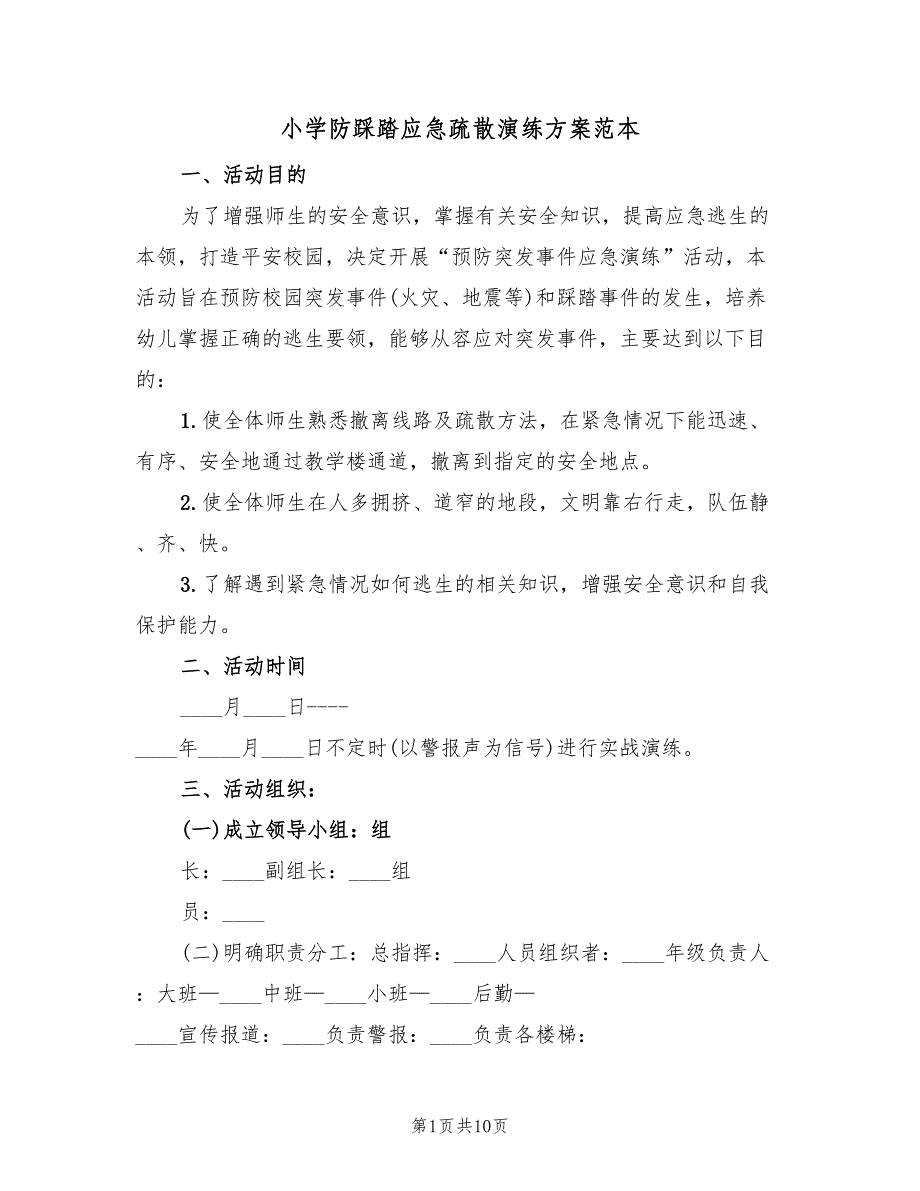 小学防踩踏应急疏散演练方案范本
一、活动目的
为了增强师生的安全意识，掌握有关安全知识，提高应急逃生的
本领，打造平安校园，决定开展“预防突发事件应急演练”活动，本
活动旨在预防校园突发事件(火灾、地震等)和踩踏事件的发生，培养
幼儿掌握正确的逃生要领，能够从容应对突发事件，主要达到以下目
的：
1.使全体师生熟悉撤离线路及疏散方法，在紧急情况下能迅速、
有序、安全地通过教学楼通道，撤离到指定的安全地点。
2.使全体师生在人多拥挤、道窄的地段，文明靠右行走，队伍静
、齐、快。
3.了解遇到紧急情况如何逃生的相关知识，增强安全意识和自我
保护能力。
二、活动时间
____月____日----
____年____月____日不定时(以警报声为信号)进行实战演练。
三、活动组织：
(一)成立领导小组：组
长：____副组长：____组
员：____
(二)明确职责分工：总指挥：____人员组织者：____年级负责人
：大班—____中班—____小班—____后勤—
____宣传报道：____负责警报：____负责各楼梯：
第1页共10页